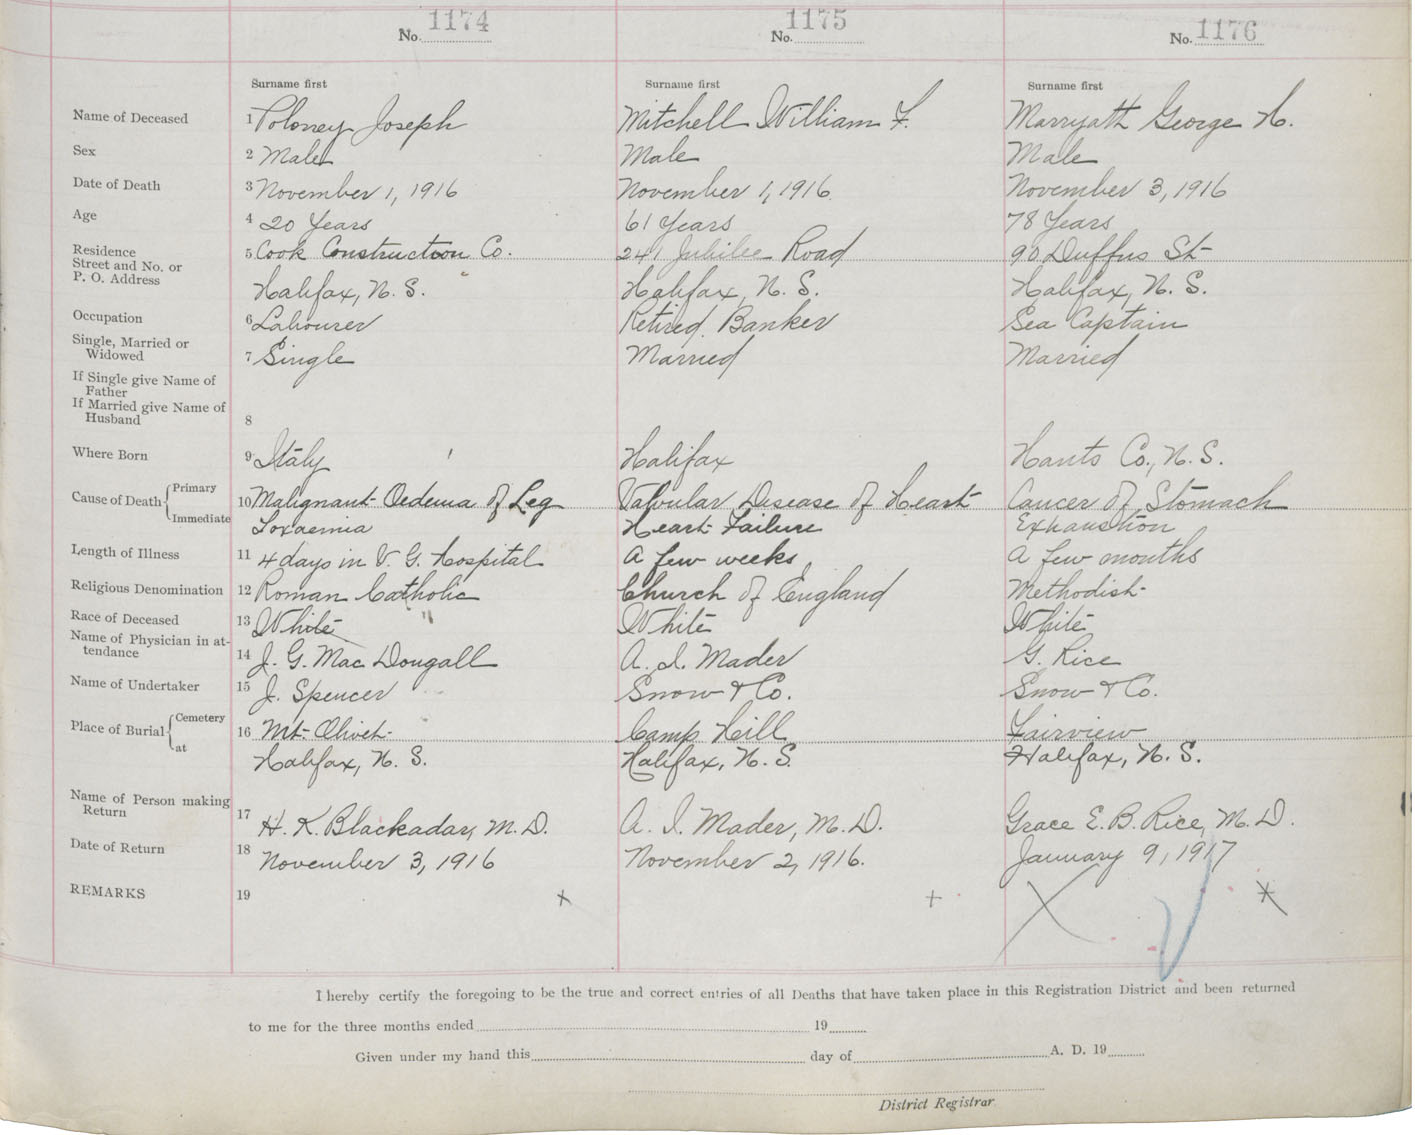 No. 1174
No. 1175
No. 1176
Surname first Surname first Surname first
Name of Deceased 1 Poloney Joseph Mitchell William F. Marryatt George A.
Sex 2 Male Male Male
Date of Death 3 November 1, 1916 November 1, 1916 November 3, 1916
Age 4 20 Years 61 Years 78 Years
Residence
Street and No. or
P. O. Address
5 Cook Construction Co. 241 Jubilee Road 90 Duffus St
Halifax, N. S. Halifax, N. S. Halifax, N. S.
Occupation 6 Labourer Retired Banker Sea Captain
Single, Married or
Widowed 7 Single Married Married
If Single give Name of
Father
If Married give Name of
Husband 8
Where Born 9 Italy Halifax Hants Co., N. S.
Cause of Death Primary 10 Malignant Oedema of Leg Valvular Disease of Heart Cancer of Stomach
Immediate Toxaemia Heart Failure Exhaustion
Length of Illness 11 4 days in V. G. Hospital A few weeks A few months
Religious Denomination 12 Roman Catholic Church of England Methodist
Race of Deceased 13 White White White
Name of Physician in at-
tendance 14 J. G. Mac Dougall A. I. Mader G. Rice
Name of Undertaker 15 J. Spencer Snow & Co. Snow & Co.
Place of Burial Cemetery 16 Mt Olivet Camp Hill Fairview
at Halifax, N. S. Halifax, N. S. Halifax, N. S.
Name of Person making
Return 17 H. K. Blackadar, M. D. A. I. Mader, M. D. Grace E. B. Rice, M. D.
Date of Return 18 November 3, 1916 November 2, 1916. January 9, 1917
REMARKS 19
I hereby certify the foregoing to be the true and correct entries of all Deaths that have taken place in this Registration District and been returned
to me for the three months ended 19
Given under my hand this day of A. D. 19
District Registrar